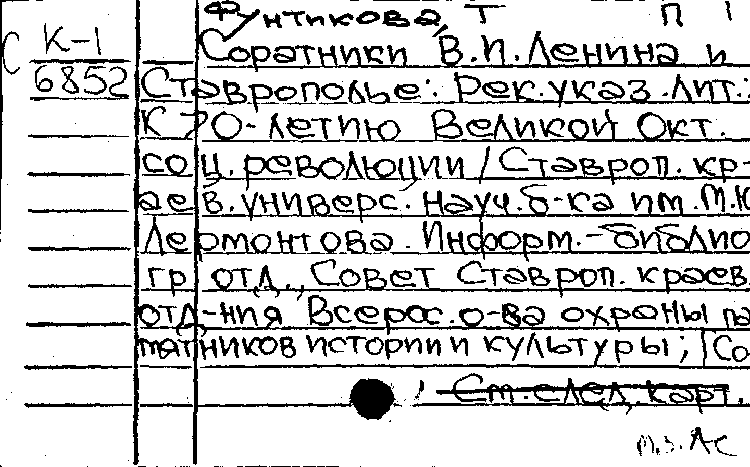 Фунтикова, Т П
С К-1 Соратники В.И.Ленина и
6852 Ставрополье: Рек.указ.лит.:
К 70-летию Великой Окт.
соц.революции / Ставроп.кр-
аев.универс.науч.б-ка им.М.Ю
Лермонтова. Информ.-библио
гр отд., Совет Ставроп.краев.
отд-ния Всерос.о-ва охраны па
мятников истории и культуры; [Со
См.след.карт.